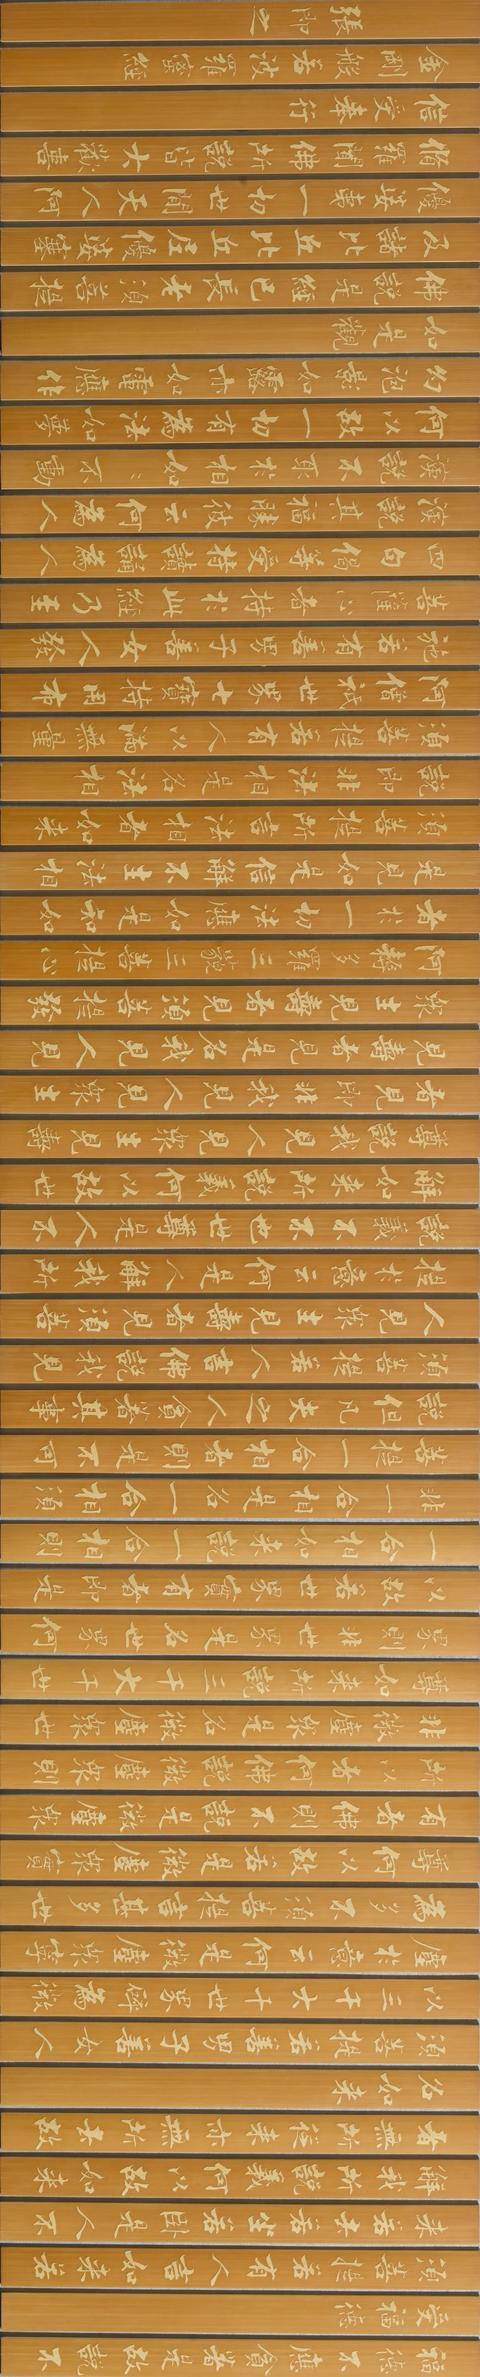 福德不應貪著是故說不
受福德
須菩提若有人言如來若
來若去若坐若臥是人不
解我所說義何以故如來
者無所從來亦無所去故
名如來
須菩提若善男子善女人
以三千大千世界碎為微
塵於意云何是微塵眾寧
為多不須菩提言甚多世
尊何以故若是微塵眾實
有者佛則不說是微塵眾
所以者何佛說微塵眾則
非微塵眾是名微塵眾世
尊如來所說三千大千世
界則非世界是名世界何
以故若世界實有者即是
一合相如來說一合相則
非一合相是名一合相須
菩提一合相者則是不可
說但凡夫之人貪著其事
須菩提若人言佛說我見
人見眾生見壽者見須菩
提於意云何是人解我所
說義不不也世尊是人不
解如來所說義何以故世
尊說我見人見眾生見壽
者見即非我見人見眾生
見壽者見是名我見人見
眾生見壽者見須菩提發
阿耨多羅三藐三菩提心
者於一切法應如是知如
是見如是信解不生法相
須菩提所言法相者如來
說即非法相是名法相
須菩提若有人以滿無量
阿僧祇世界七寶持用布
施若有善男子善女人發
菩薩心者持於此經乃至
四句偈等受持讀誦為人
演說其福勝彼云何為人
演說不取於相如〻不動
何以故一切有為法如夢
幻泡影如露亦如電應作
如是觀
佛說是經已長老須菩提
及諸比丘比丘尼優婆塞
優婆夷一切世間天人阿
脩羅聞佛所說皆大歡喜
信受奉行
金剛般若波羅蜜經
張即之